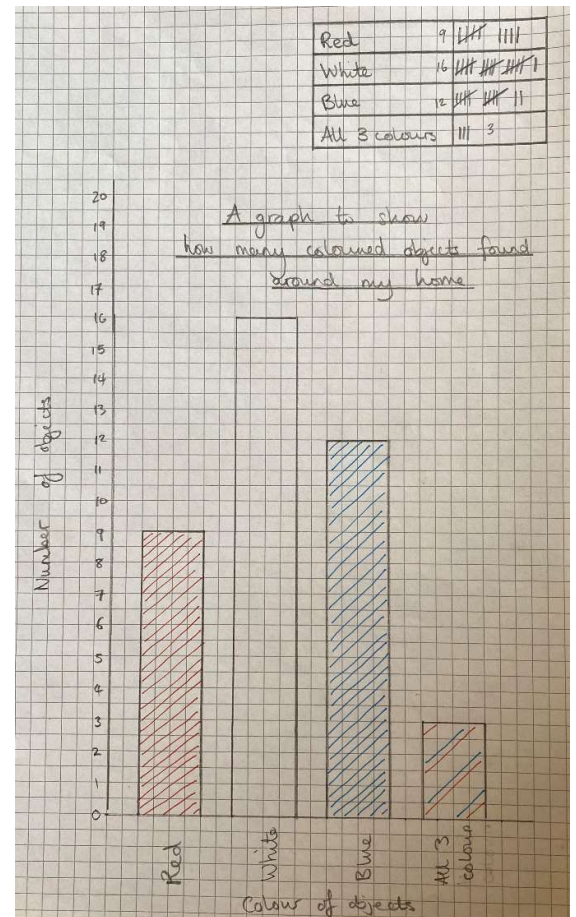 Red 9 卌 ||||
White 16 卌 卌 卌 |
Blue 12 卌 卌 ||
All 3 colours ||| 3
A graph to show
how many coloured objects found
around my home
20
19
18
17
16
15
14
13
12
11
10
9
8
7
6
5
4
3
2
1
0
Number of objects
Red
White
Blue
All 3
colour
Colour of objects